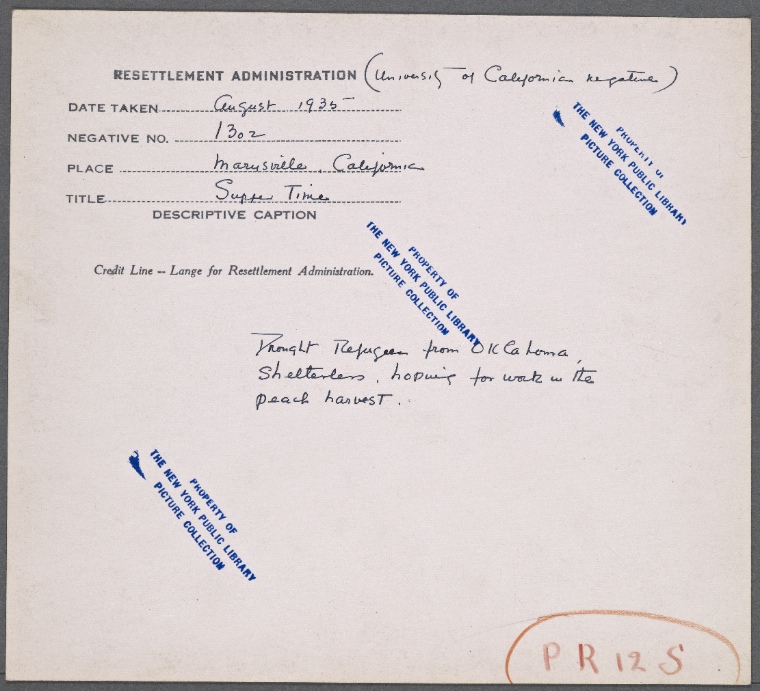 RESETTLEMENT ADMINISTRATION (University of California negative)
DATE TAKEN August 1935
NEGATIVE NO. 1302
PLACE Marysville, California
TITLE Supper Time
DESCRIPTIVE CAPTION
PROPERTY OF
THE NEW YORK PUBLIC LIBRARY
PICTURE COLLECTION
Credit Line -- Lange for Resettlement Administration.
PROPERTY OF
THE NEW YORK PUBLIC LIBRARY
PICTURE COLLECTION
Drought Refugees from Oklahoma,
Shelterless, hoping for work in the
peach harvest.
PROPERTY OF
THE NEW YORK PUBLIC LIBRARY
PICTURE COLLECTION
PR12S